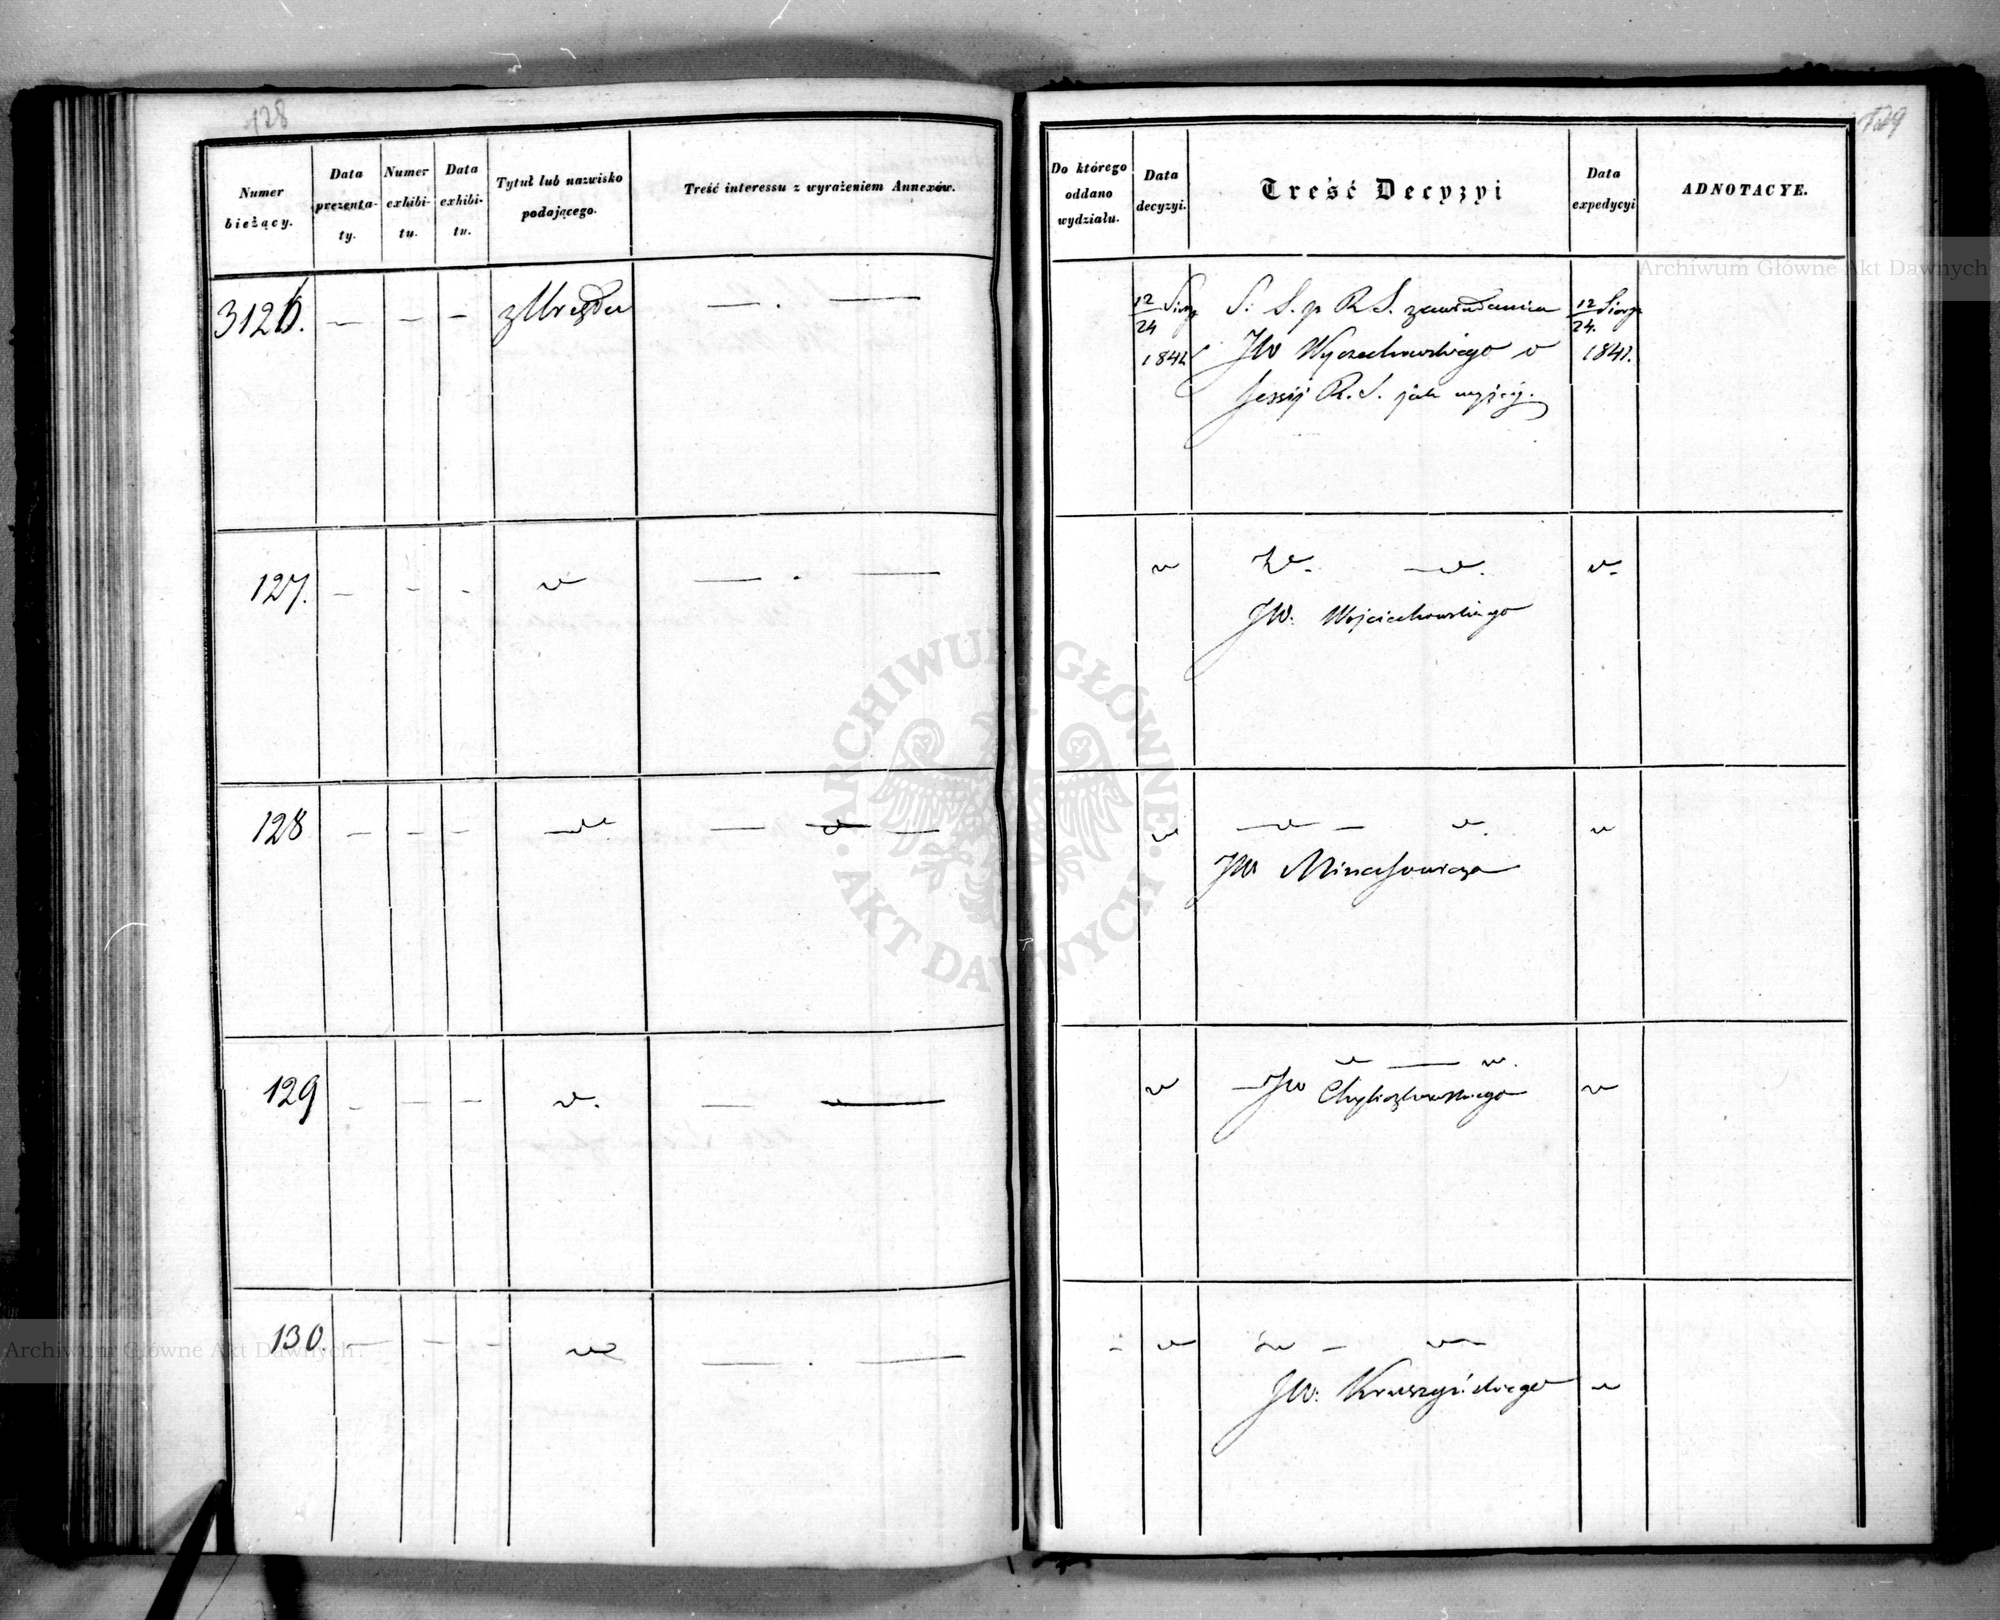 128
Numer bieżący.
Data prezenta-ty.
Numer exhibi-tu.
Data exhibi-tu.
Tytuł lub nazwisko podającego.
Treść interessu z wyrażeniem Annexów.
3126. — — — z Urzędu — . —
127. — — — — . —
128 — — — — —
129 — — — — —
130. — — — — . —
129
Do którego oddano wydziału.
Data decyzyi.
Treść Decyzyi
Data expedycyi
ADNOTACYE.
12/24 Sierp 1841
S. p R. S. zawiadamia
JW Wyczechowskiego o
sessij R. S. jak wyżej.
12/24. Sierp 1841.
JW. Wojciechowskiego
JW Minasowicza
JW Chyliczkowskiego
JW. Kruszyńskiego
Archiwum Główne Akt Dawnych
ARCHIWUM GŁÓWNE · AKT DAWNYCH ·
Archiwum Główne Akt Dawnych